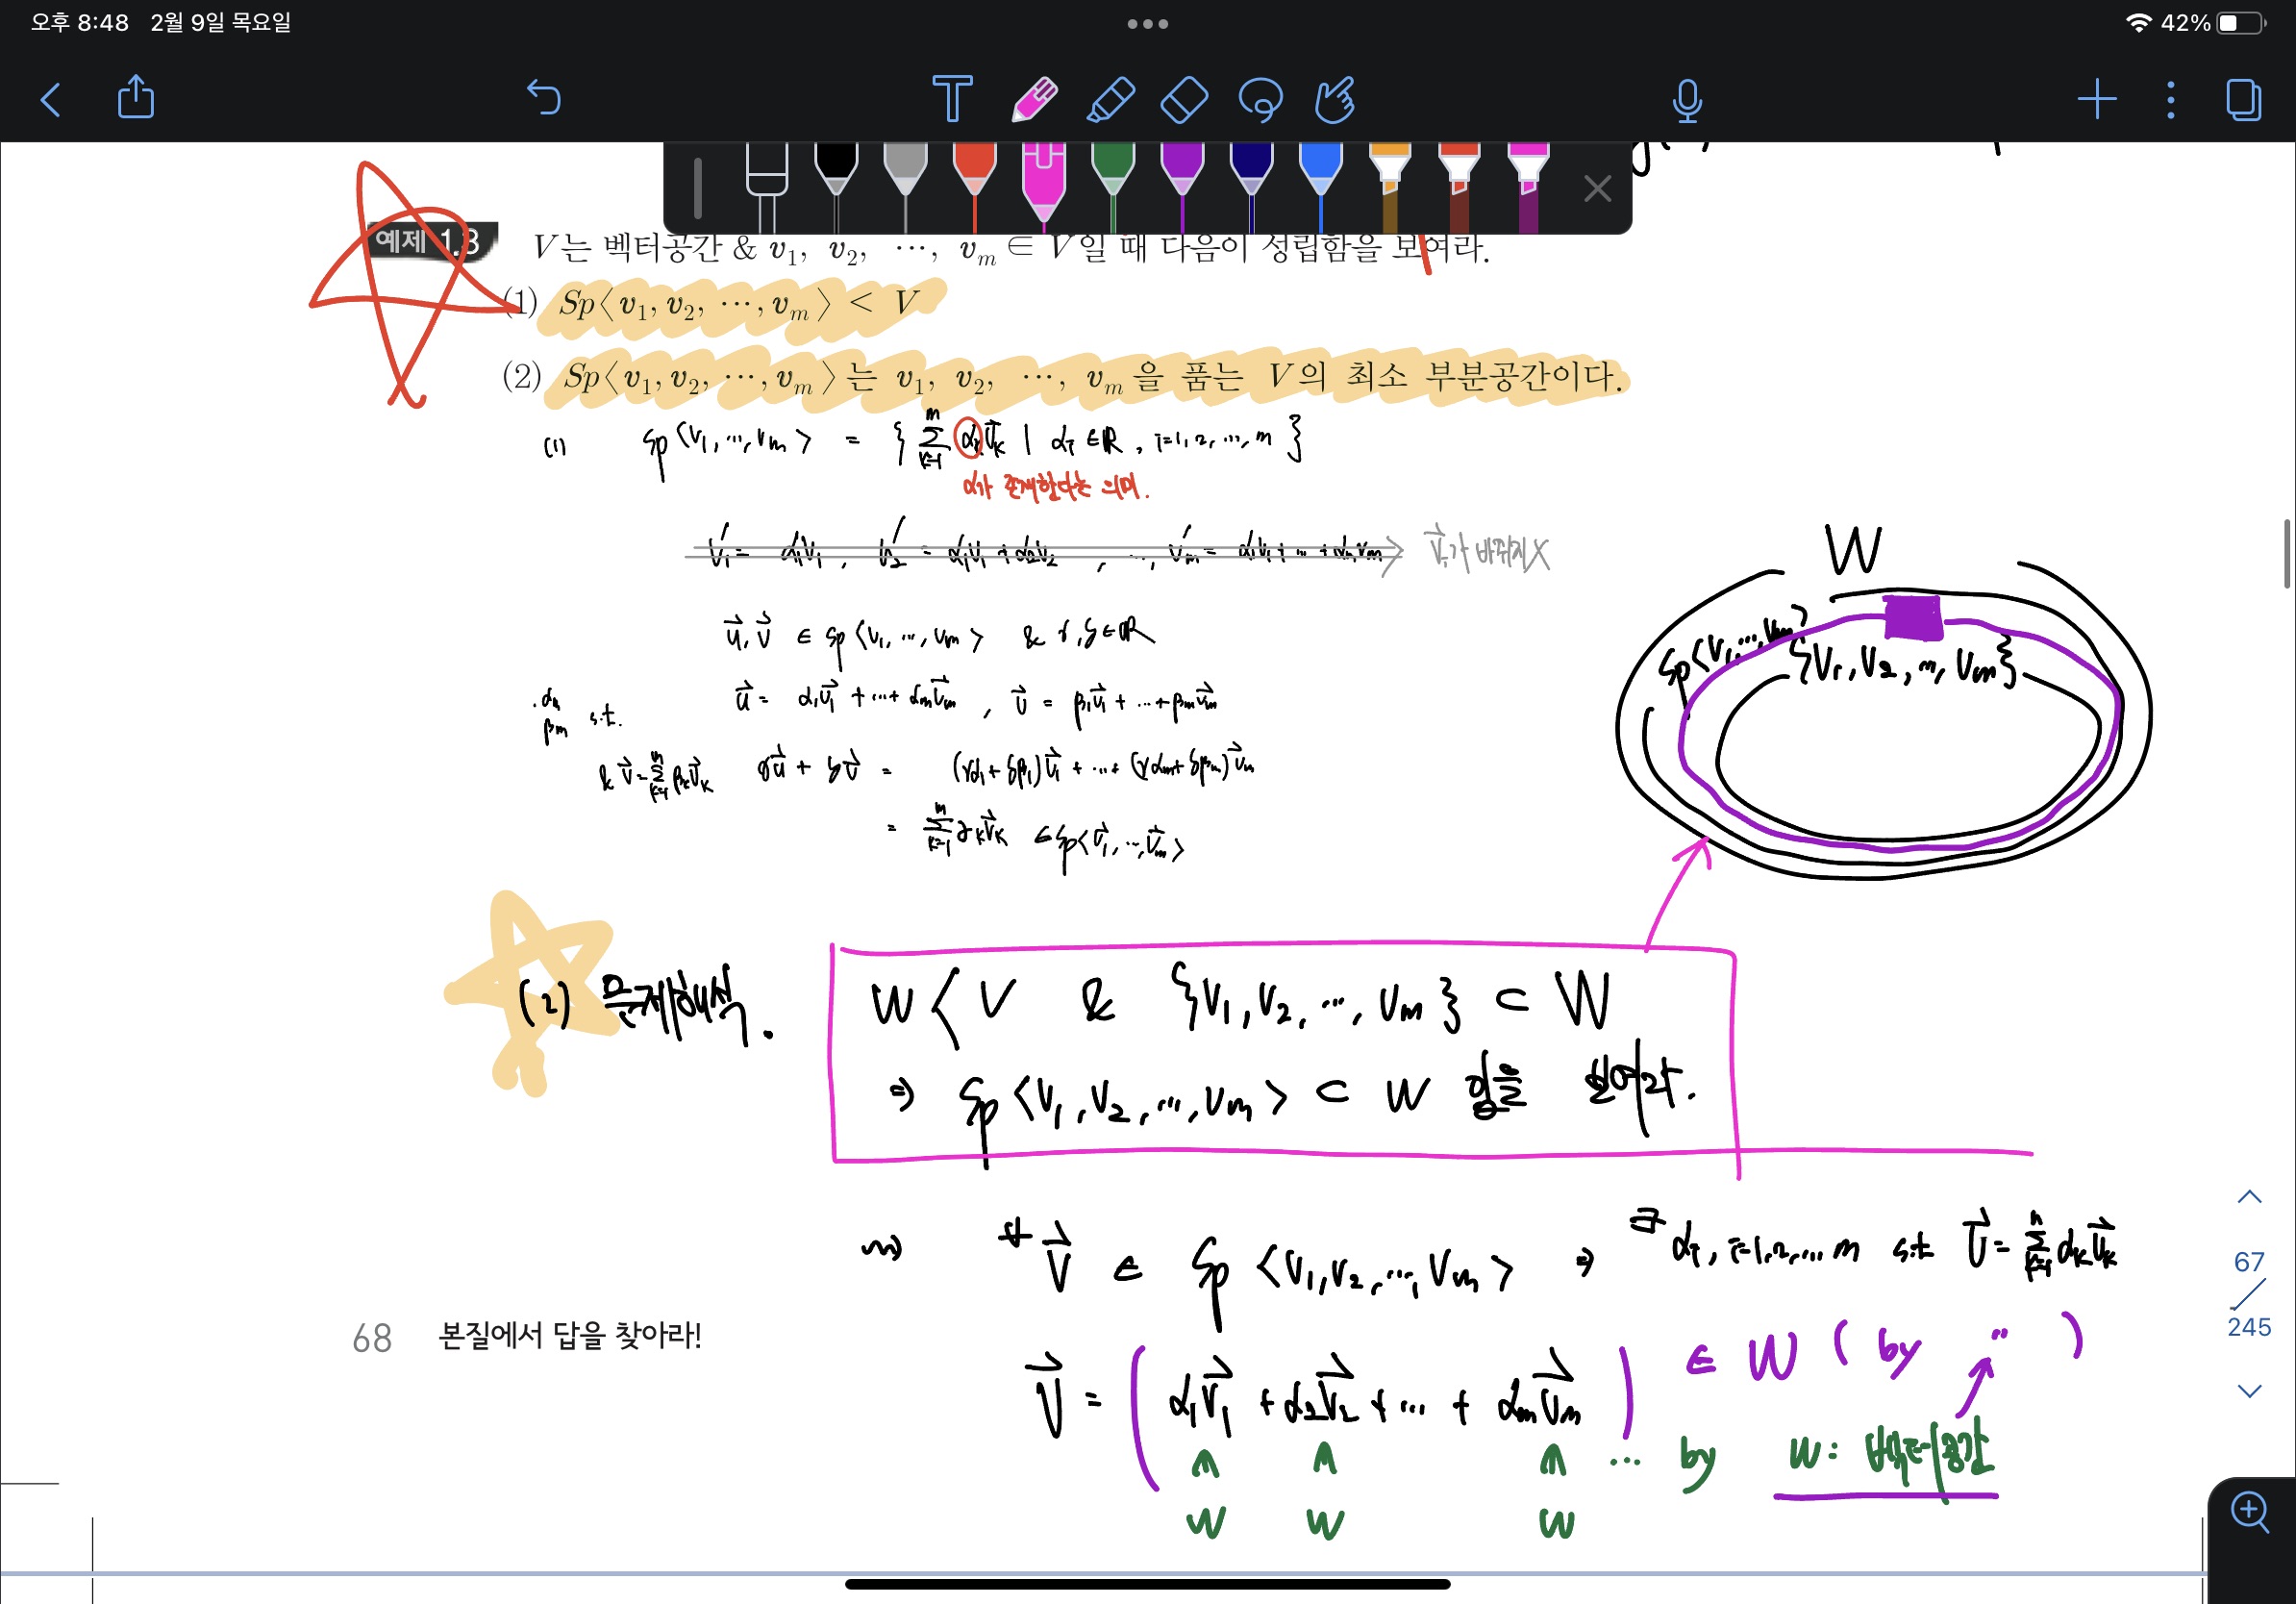 오후 8:48 2월 9일 목요일
42%
예제 1.3 V는 벡터공간 & v₁, v₂, ⋯, vₘ ∈ V일 때 다음이 성립함을 보여라.
(1) Sp⟨v₁, v₂, ⋯, vₘ⟩ < V
(2) Sp⟨v₁, v₂, ⋯, vₘ⟩는 v₁, v₂, ⋯, vₘ을 품는 V의 최소 부분공간이다.
(1) Sp⟨v₁, ⋯, vₘ⟩ = { Σₖ₌₁ᵐ αₖv⃗ₖ | αᵢ ∈ ℝ, i=1, 2, ⋯, m }
α가 존재한다는 의미.
v₁' = α₁v₁, v₂' = α₁v₁ + α₂v₂, ⋯, vₘ' = α₁v₁ + ⋯ + αₘvₘ v⃗ᵢ가 바뀌지 X
u⃗, v⃗ ∈ Sp⟨v₁, ⋯, vₘ⟩ & γ, δ ∈ ℝ
αₖ βₘ s.t. u⃗ = α₁v⃗₁ + ⋯ + αₘv⃗ₘ, v⃗ = β₁v⃗₁ + ⋯ + βₘv⃗ₘ
& v⃗ = Σₖ₌₁ᵐ βₖv⃗ₖ γu⃗ + δv⃗ = (γα₁ + δβ₁)v⃗₁ + ⋯ + (γαₘ + δβₘ)v⃗ₘ
= Σₖ₌₁ᵐ γₖv⃗ₖ ∈ Sp⟨v⃗₁, ⋯, v⃗ₘ⟩
W
Sp⟨v₁, ⋯, vₘ⟩
{v₁, v₂, ⋯, vₘ}
(2) 문제해석. W < V & {v₁, v₂, ⋯, vₘ} ⊂ W
⇒ Sp⟨v₁, v₂, ⋯, vₘ⟩ ⊂ W 임을 보여라.
∀v⃗ ∈ Sp⟨v₁, v₂, ⋯, vₘ⟩ ⇒ ∃αᵢ, i=1, 2, ⋯ m s.t v⃗ = Σₖ₌₁ⁿ αₖv⃗ₖ
v⃗ = (α₁v⃗₁ + α₂v⃗₂ + ⋯ + αₘv⃗ₘ) ∈ W (by ")
W W W ⋯ by W: 벡터공간
68 본질에서 답을 찾아라!
67
245